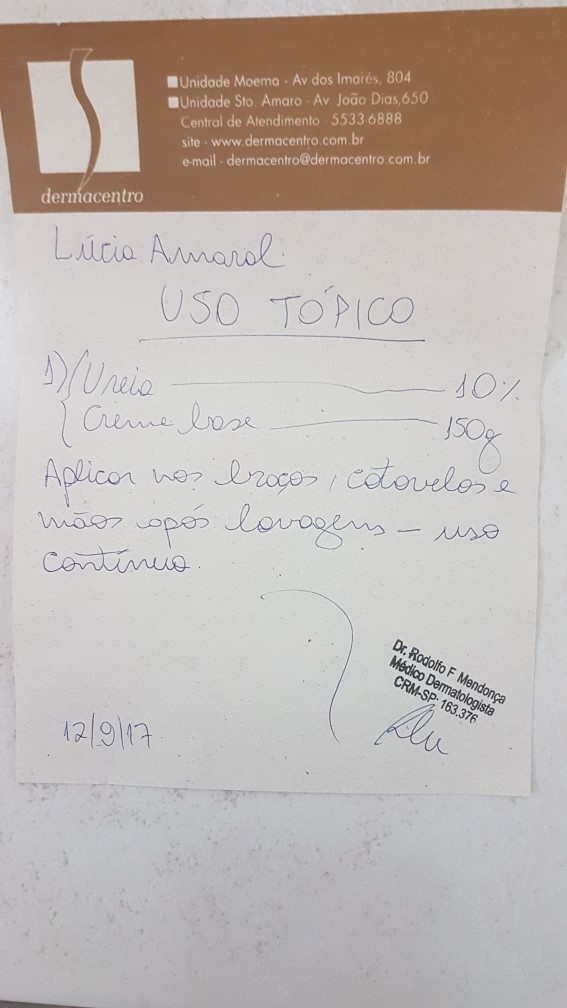 Unidade Moema - Av dos Imarés, 804
Unidade Sto. Amaro - Av. João Dias,650
Central de Atendimento - 5533-6888
site - www.dermacentro.com.br
e-mail - dermacentro@dermacentro.com.br
dermacentro
Lúcia Amaral
USO TÓPICO
1) Ureia 10%
Creme base 150g
Aplicar nos braços, cotovelos e
mãos após lavagens - uso
contínuo.
Dr. Rodolfo F Mendonça
Médico Dermatologista
CRM-SP: 163.376
12/9/17